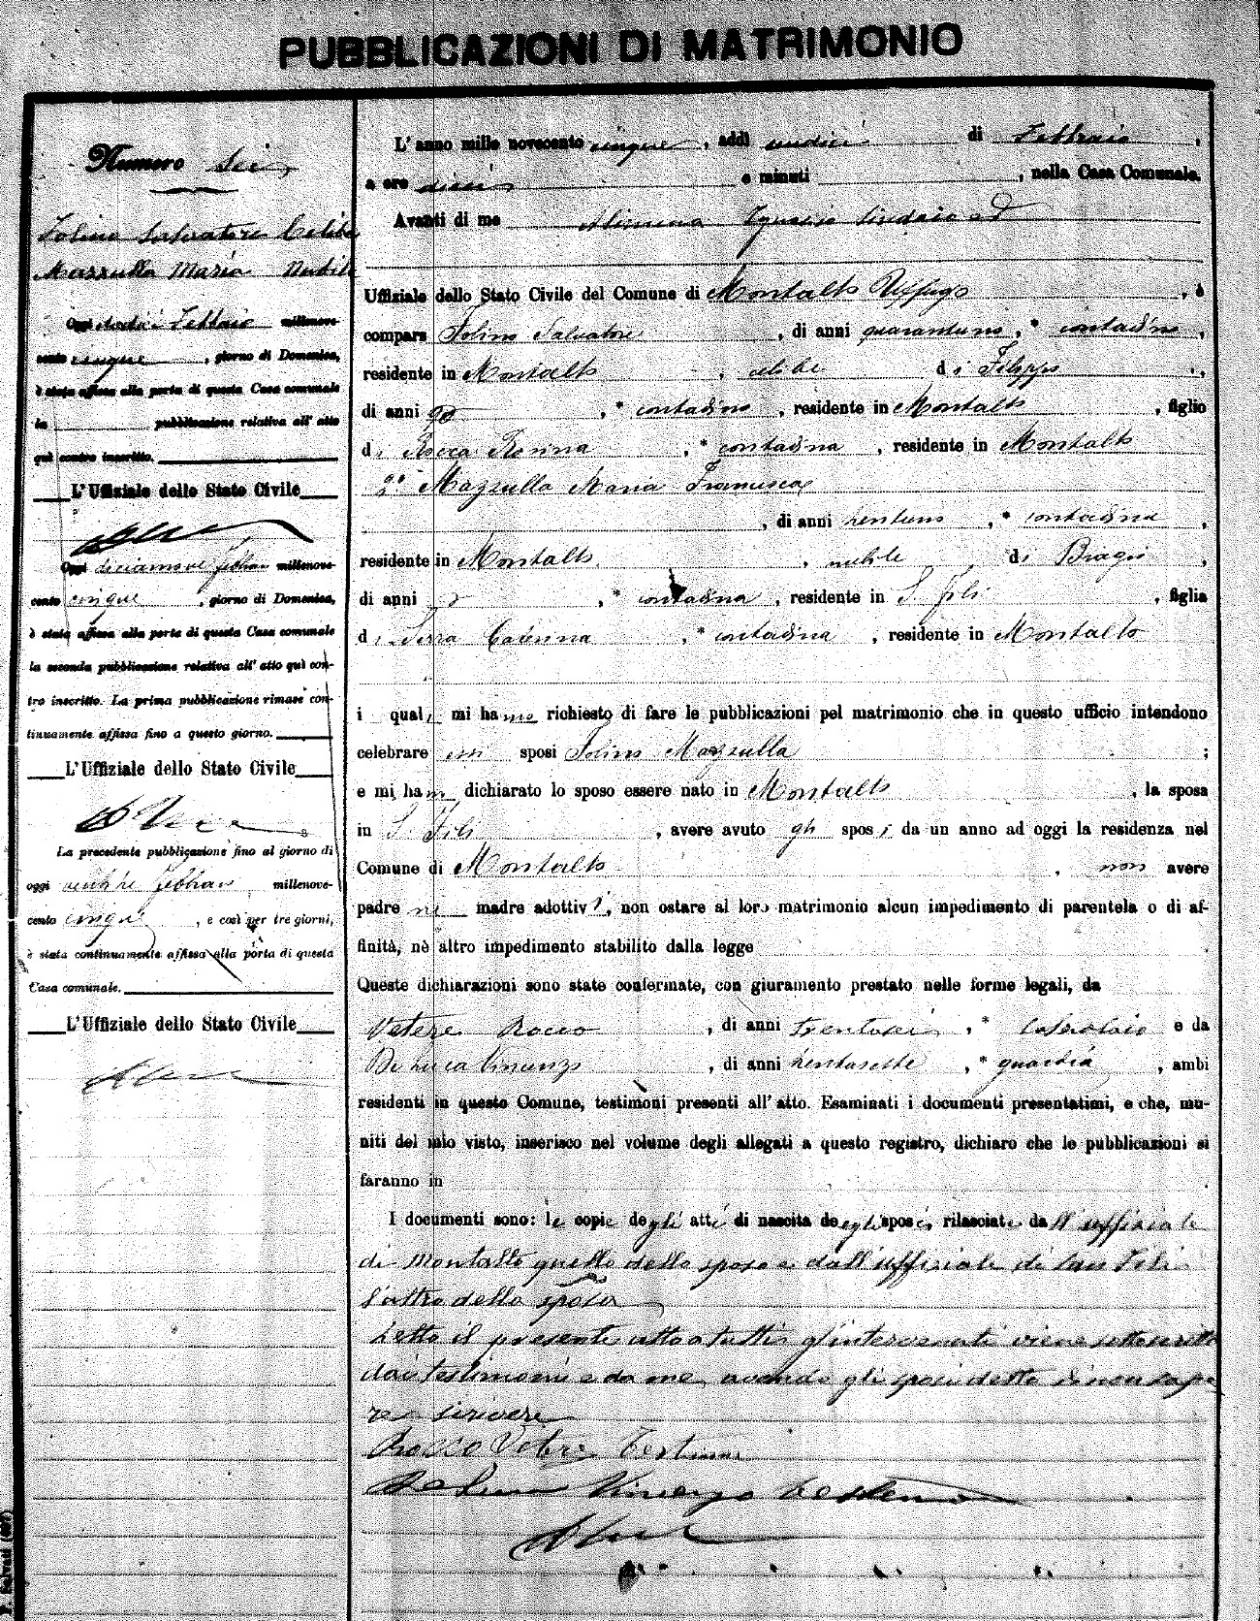 PUBBLICAZIONI DI MATRIMONIO
Numero Sei
Folino Salvatore Celibe
Mazzulla Maria Nubile
Oggi dodici Febbraio millenove-
cento cinque, giorno di Domenica,
è stata affissa alla porta di questa Casa comunale
la pubblicazione relativa all' atto
quì contro inscritto.
L'Uffiziale dello Stato Civile
Oggi diciannove Febbraio millenove-
cento cinque, giorno di Domenica,
è stata affissa alla porta di questa Casa comunale
la seconda pubblicazione relativa all' atto quì con-
tro inscritto. La prima pubblicazione rimase con-
tinuamente affissa fino a questo giorno.
L'Uffiziale dello Stato Civile
La precedente pubblicazione fino al giorno di
oggi Febbraio millenove-
cento cinque, e così per tre giorni,
è stata continuamente affissa alla porta di questa
Casa comunale.
L'Uffiziale dello Stato Civile
L'anno mille novecento cinque, addì undici di Febbraio,
a ore dieci e minuti , nella Casa Comunale.
Avanti di me Alimena Ignazio Sindaco ed
Uffiziale dello Stato Civile del Comune di Montalto Uffugo, è
compars Folino Salvatore, di anni quarantuno, * contadino,
residente in Montalto, celibe di Filippo,
di anni , * contadino, residente in Montalto, figlio
di Rocca Rosina, * contadina, residente in Montalto
2° Mazzulla Maria Francesca
, di anni trentuno, * contadina,
residente in Montalto, nubile di Biagio,
di anni , * contadina, residente in S. Fili, figlia
di Serra Caterina, * contadina, residente in Montalto
i quali mi hanno richiesto di fare le pubblicazioni pel matrimonio che in questo ufficio intendono
celebrare essi sposi Folino Mazzulla ;
e mi han dichiarato lo sposo essere nato in Montalto, la sposa
in S. Fili, avere avuto gli sposi da un anno ad oggi la residenza nel
Comune di Montalto, non avere
padre nè madre adottivi, non ostare al loro matrimonio alcun impedimento di parentela o di af-
finità, nè altro impedimento stabilito dalla legge
Queste dichiarazioni sono state confermate, con giuramento prestato nelle forme legali, da
Vetere Rocco, di anni trentasei, * calzolaio e da
De Luca Vincenzo, di anni trentasette, * guardia, ambi
residenti in questo Comune, testimoni presenti all' atto. Esaminati i documenti presentatimi, e che, mu-
niti del mio visto, inserisco nel volume degli allegati a questo registro, dichiaro che le pubblicazioni si
faranno in
I documenti sono: le copie degli atti di nascita degli sposi rilasciate dall'uffiziale
di Montalto quello dello sposo e dall'uffiziale di San Fili
l'altro della sposa
Letto il presente atto a tutti gl'intervenuti viene sottoscritto
dai testimoni e da me, avendo gli sposi detto di non sape
re scrivere
Rocco Vetere Testimone
De Luca Vincenzo testimone